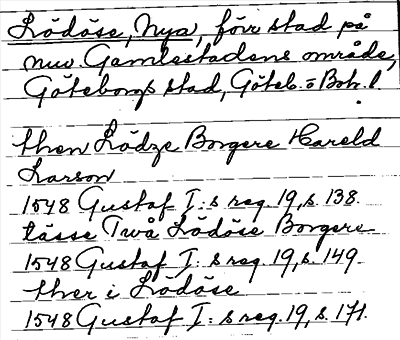 Lödöse, Nya, förr stad på
nuv. Gamlestadens område,
Göteborgs stad, Göteb. o Boh. l.
then Lödze Borgere Hareld
Larson
1548 Gustaf I:s reg. 19, s. 138.
tässe Twå Lödöse Borgere
1548 Gustaf I:s reg. 19, s. 149
ther i Lödöse
1548 Gustaf I:s reg. 19, s. 171.